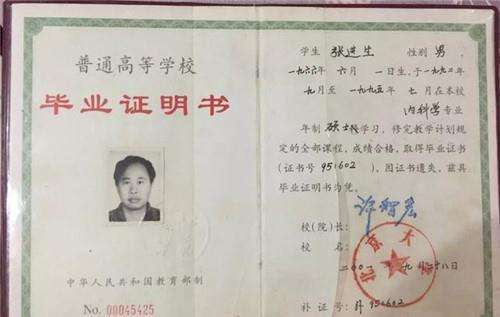 普通高等学校
毕业证明书
中华人民共和国教育部制
No. 00045425
学生 张进生 性别 男，
一九六六年 六月 一日生，于一九九二年
九月至 一九九五年 七月在本校
内科学 专业
年制 硕士 学习，修完教学计划规
定的全部课程，成绩合格，取得毕业证书
(证书号 951602 )。因证书遗失，兹具
毕业证明书为凭。
校(院)长：
校 名：
北京大学
二〇〇一年 九月二十八日
补 证 号：补 951602